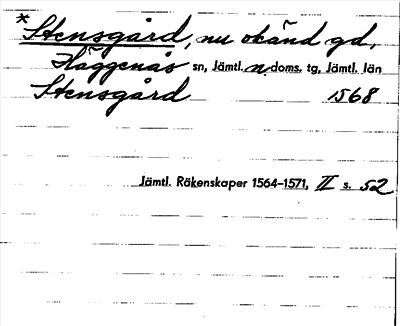 *Stensgård, nu okänd gd,
Häggenås sn, Jämtl. n. doms. tg, Jämtl. län
Stensgård 1568
Jämtl. Räkenskaper 1564–1571, II s. 52